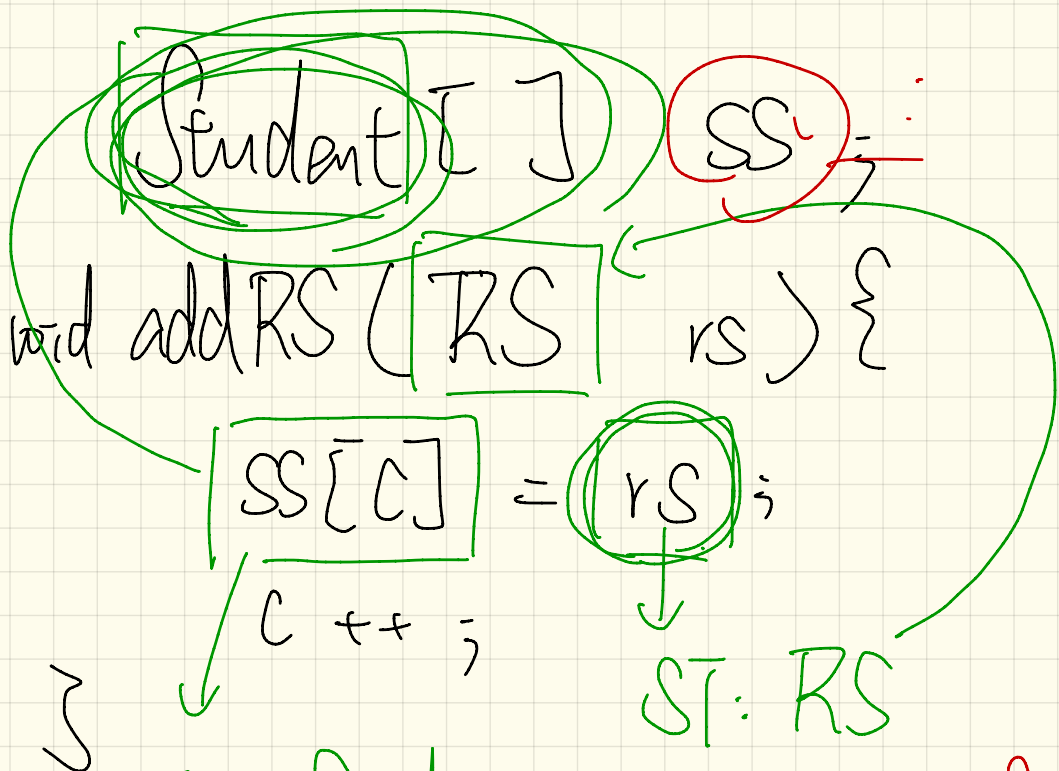 Student [ ] SS ;
void addRS ( RS rs ) {
SS[C] = rs ;
C ++ ;
ST: RS
}